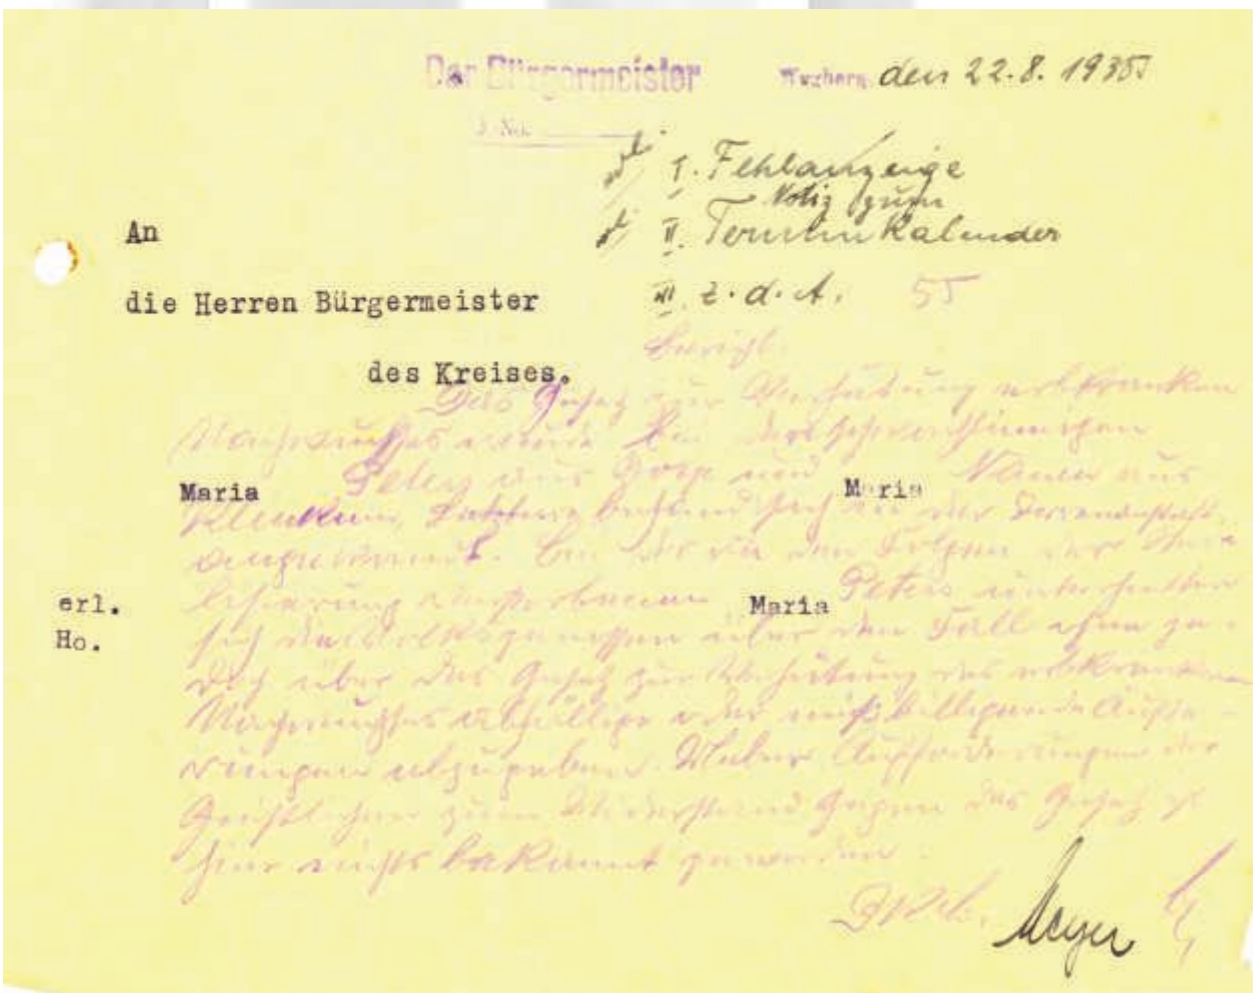 Der Bürgermeister
den 22.8.1935
J. No.
I. Fehlanzeige
Notiz zum
II. Terminkalender
An
III. z. d. A. 55
die Herren Bürgermeister
Bericht.
des Kreises.
Das Gesetz zur Verhütung erbkranken
Nachwuchses wurde bei
Maria Peters aus und Maria aus
befand sich in der
angewandt. Bei der an den Folgen der
erl. Maria Peters unterhielten
Ho. sich die Volksgenossen über den Fall ohne je-
doch über das Gesetz zur Verhütung des erbkranken
Nachwuchses abfällige oder mißbilligende Äuße-
rungen abzugeben. Ueber Aufforderungen der
Geistlichen zum Widerstand gegen das Gesetz ist
hier nichts bekannt geworden.
Meyer